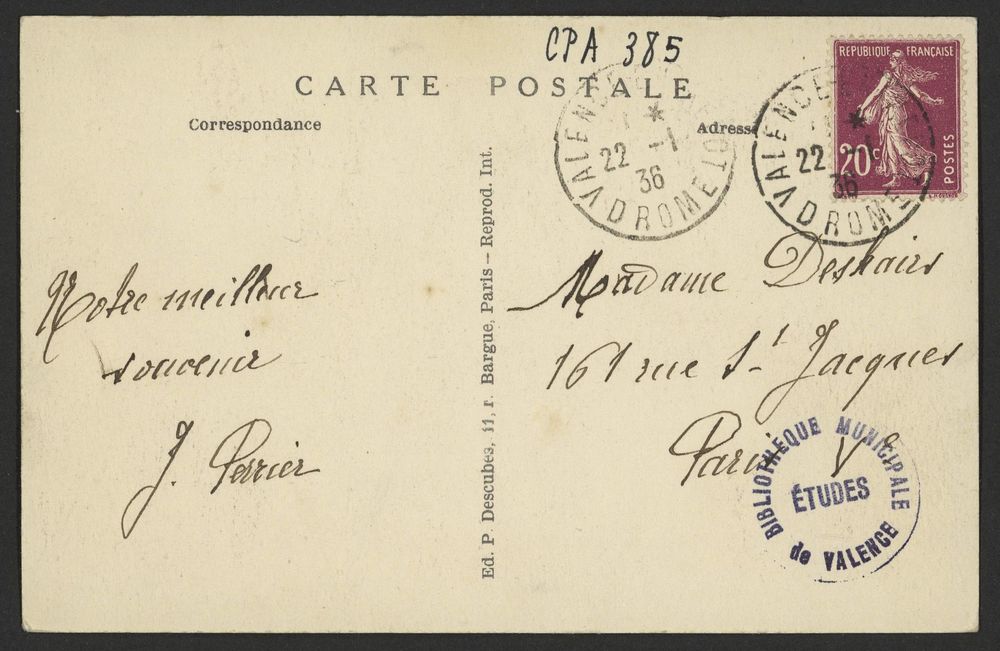 CPA 385
CARTE POSTALE
Correspondance
Adresse
RÉPUBLIQUE FRANÇAISE
20c
POSTES
VALENCE
22 -1
36
DROME
VALENCE
22 -1
36
DROME
Notre meilleur
souvenir
J. Perrier
Ed. P Descubes, 11, r. Bargue, Paris - Reprod. Int.
Madame Deshairs
161 rue St Jacques
Paris Ve
BIBLIOTHÈQUE MUNICIPALE
ÉTUDES
de VALENCE